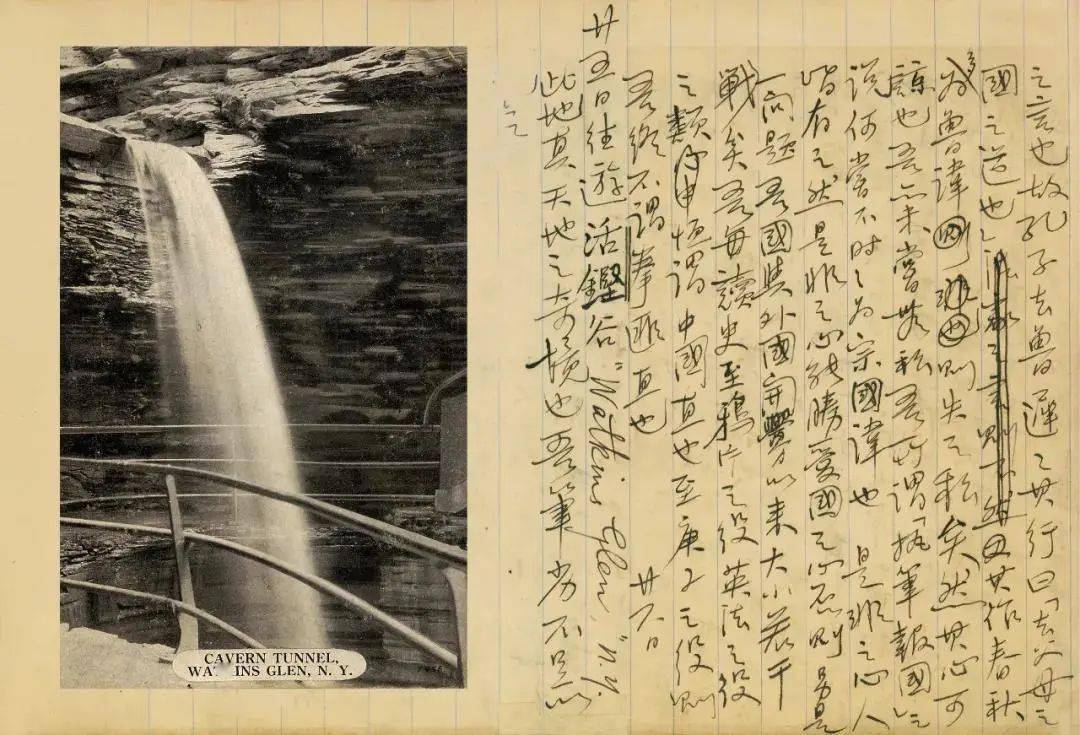 之言也故孔子去魯遲遲其行曰「去父母之
國之道也」然其作春秋
多為魯諱則失之私矣然其心可
諒也吾亦未嘗無私吾所謂「執筆報國」之
說何嘗不時時為宗國諱也 是非之心人
皆有之然是非之心能勝愛國之心否則另是
一問題吾國與外國開釁以來大小若干
戰矣吾每讀史至鴉片之役英法之役
之類恆謂中國直也至庚子之役則
吾終不謂拳匪直也 廿六日
廿五日往遊活鏗谷"Watkins Glen," N.Y.
此地真天地之奇境也吾筆劣不足以
CAVERN TUNNEL,
GLEN, N. Y.